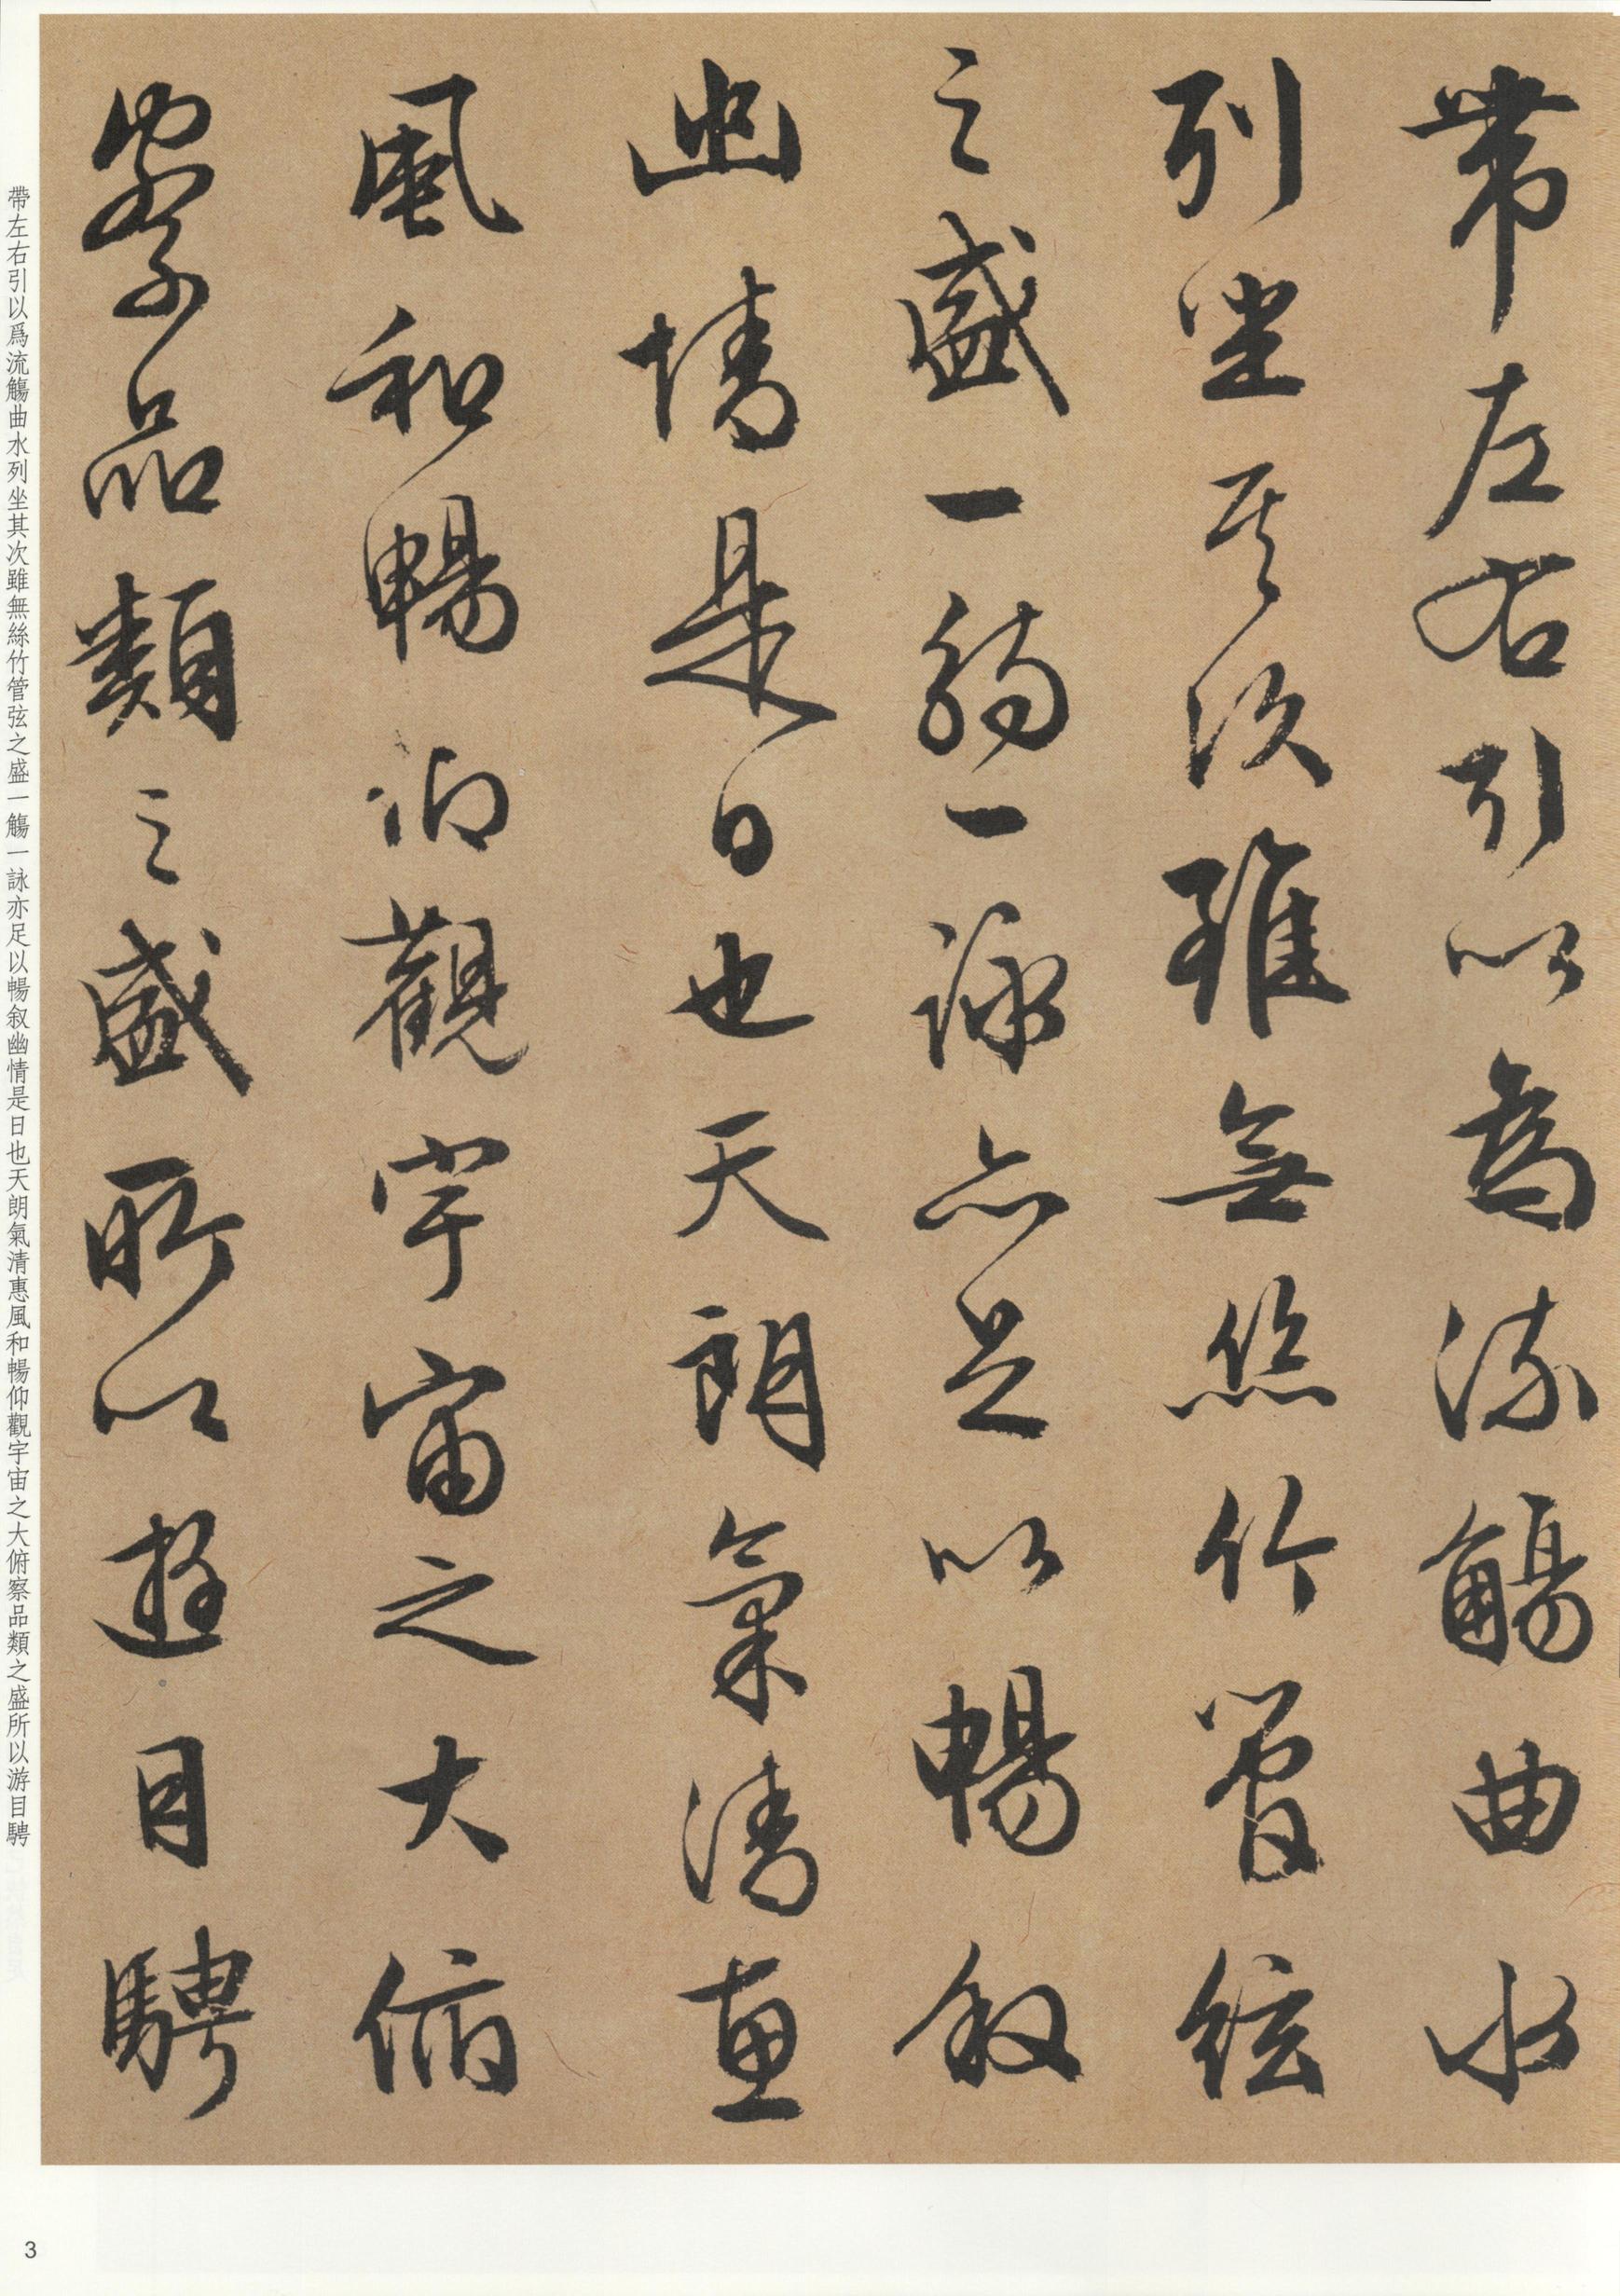 帶左右引以為流觴曲水
列坐其次雖無絲竹管絃
之盛一觴一詠亦足以暢叙
幽情是日也天朗氣清惠
風和暢仰觀宇宙之大俯
察品類之盛所以遊目騁
帶左右引以爲流觴曲水列坐其次雖無絲竹管弦之盛一觴一詠亦足以暢叙幽情是日也天朗氣清惠風和暢仰觀宇宙之大俯察品類之盛所以游目騁
3